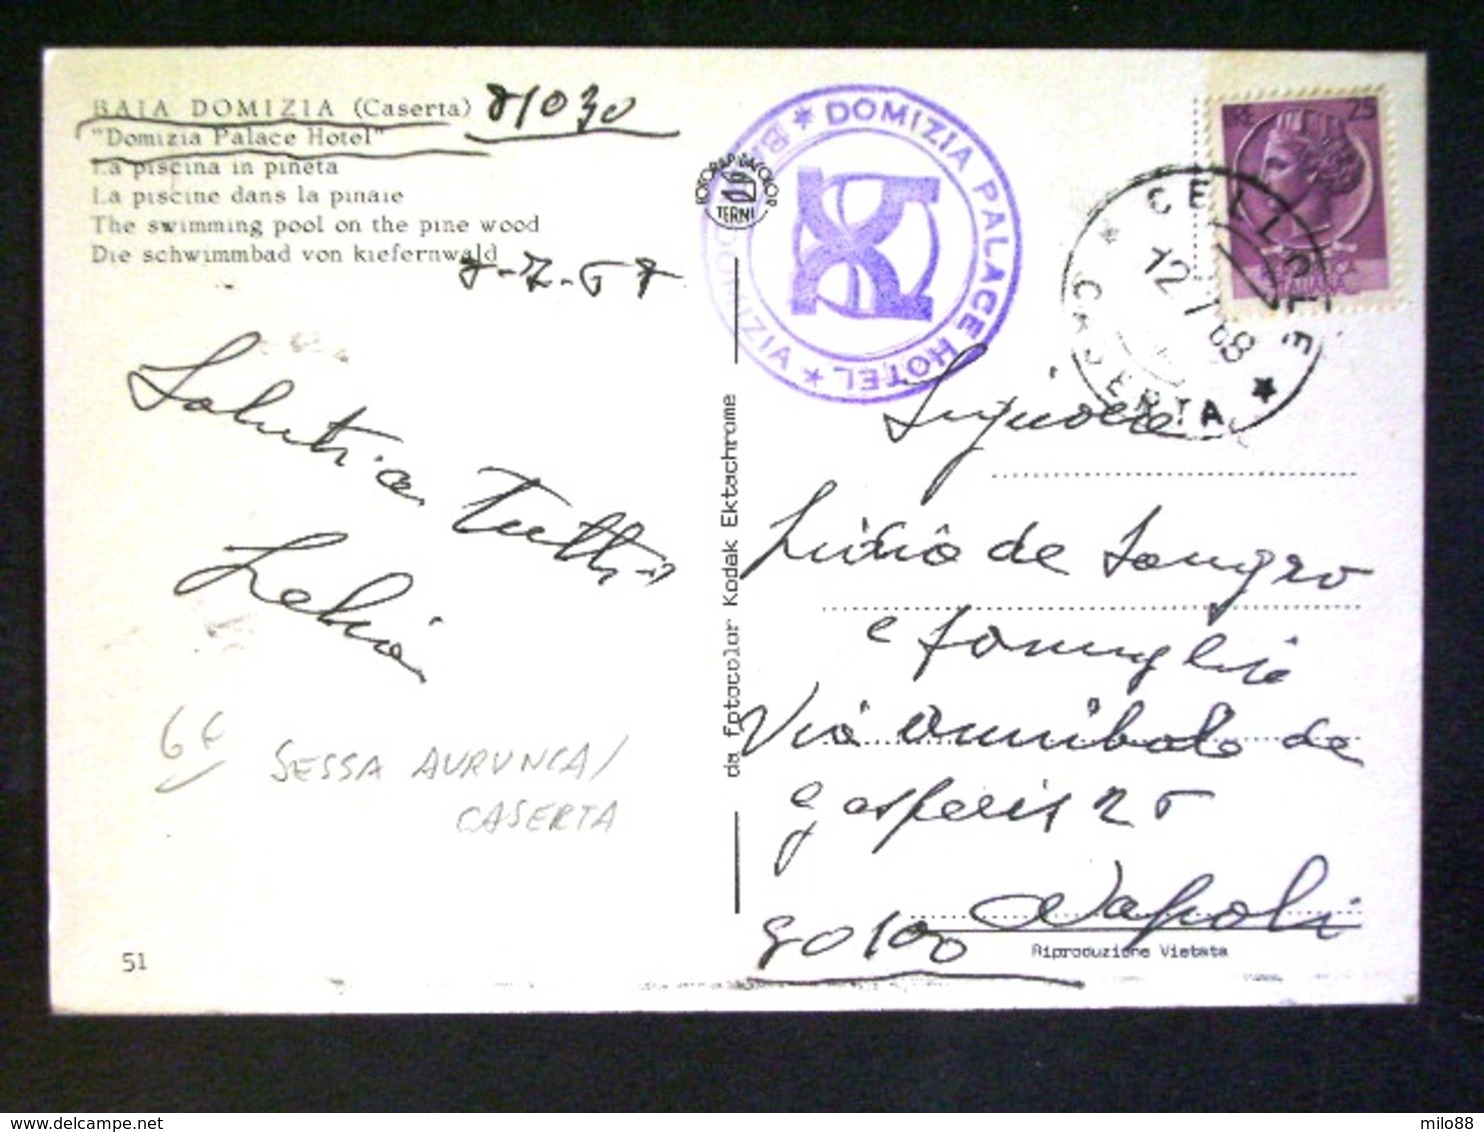 BAIA DOMIZIA (Caserta) 81030
"Domizia Palace Hotel"
La piscina in pineta
La piscine dans la pinaie
The swimming pool on the pine wood
Die schwimmbad von kiefernwald
Saluti a tutti
6 €
SESSA AURUNCA/
CASERTA
51
FOTORAPIDACOLOR
TERNI
BAIA DOMIZIA * DOMIZIA PALACE HOTEL *
da fotocolor Kodak Ektachrome
LIRE 25
ITALIANA
CELLOLE
12 7 68
CASERTA
Signore
Livio de Sangro
e famiglia
Via Annibale de
Gasperis 25
Napoli
80100
Riproduzione Vietata
milo88